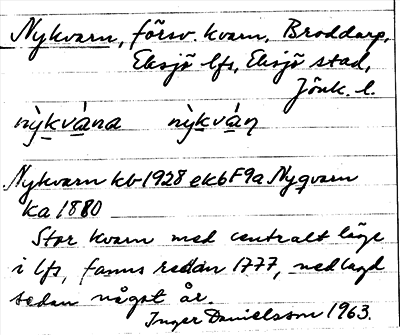 Nykvarn, försv. kvarn, Broddarp,
Eksjö lfs, Eksjö stad,
Jönk. l.
nỳkvána nỳkváṇ
Nykvarn kb 1928 ek 6F9a Nyqvarn
ka 1880
Stor kvarn med centralt läge
i lfs, fanns redan 1777, nedlagd
sedan något år.
Inger Danielsson 1963.